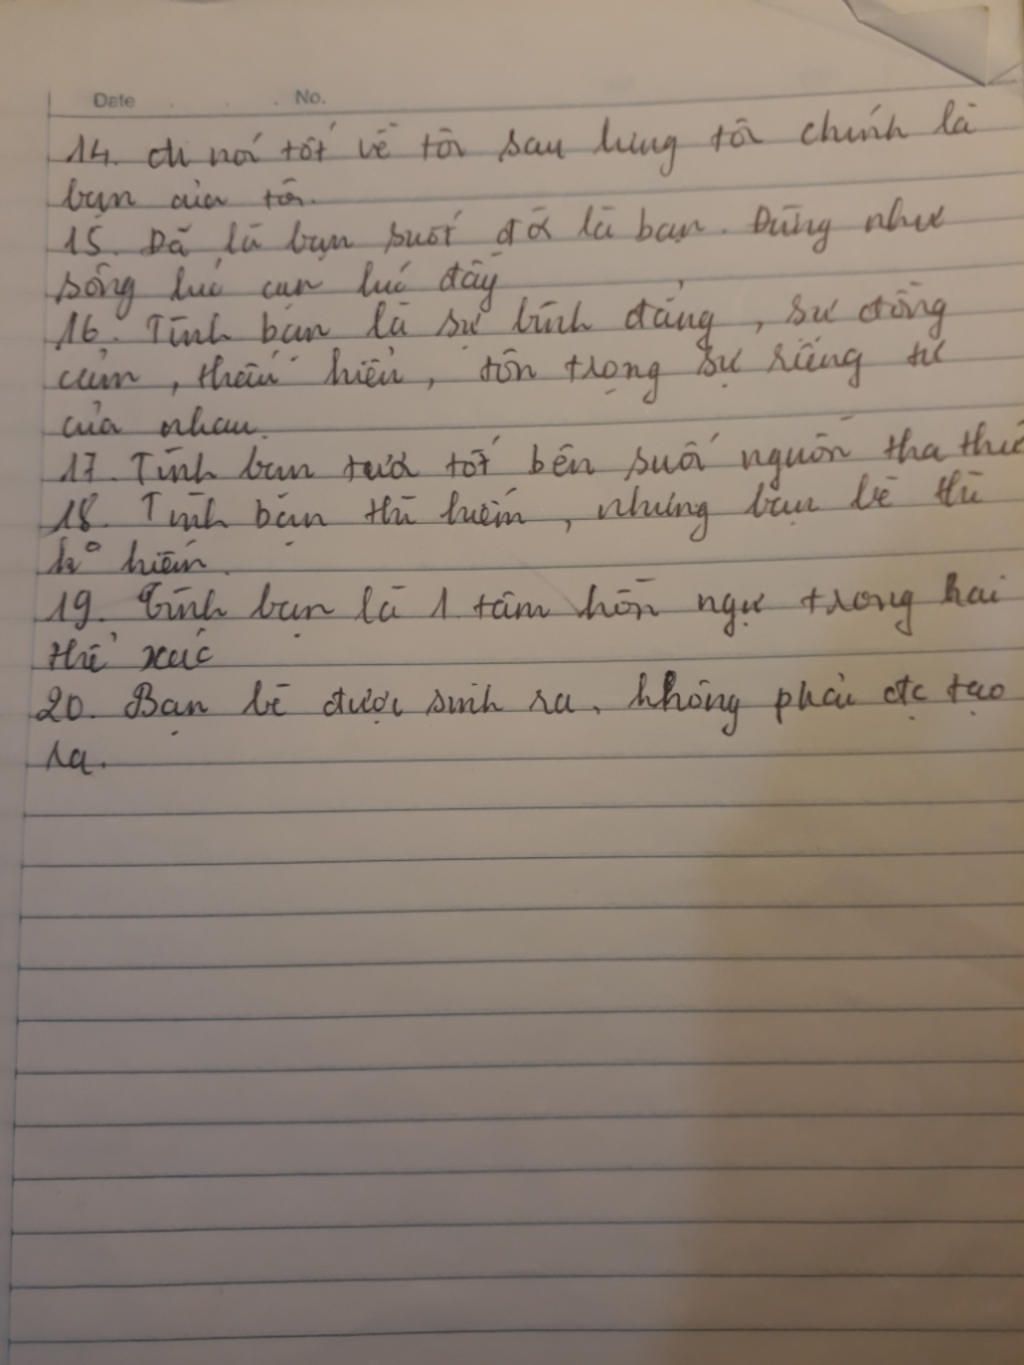 Date No.
14. Ai nói tốt về tôi sau lưng tôi chính là
bạn của tôi.
15. Đã là bạn suốt đời là bạn. Đừng như
sông lúc cạn lúc đầy
16. Tình bạn là sự bình đẳng, sự đồng
cảm, thấu hiểu, tôn trọng sự riêng tư
của nhau.
17. Tình bạn tươi tốt bên suối nguồn tha thứ
18. Tình bạn thì hiếm, nhưng bạn bè thì
k° hiếm.
19. Tình bạn là 1 tâm hồn ngự trong hai
thể xác
20. Bạn bè được sinh ra, không phải đc tạo
ra.